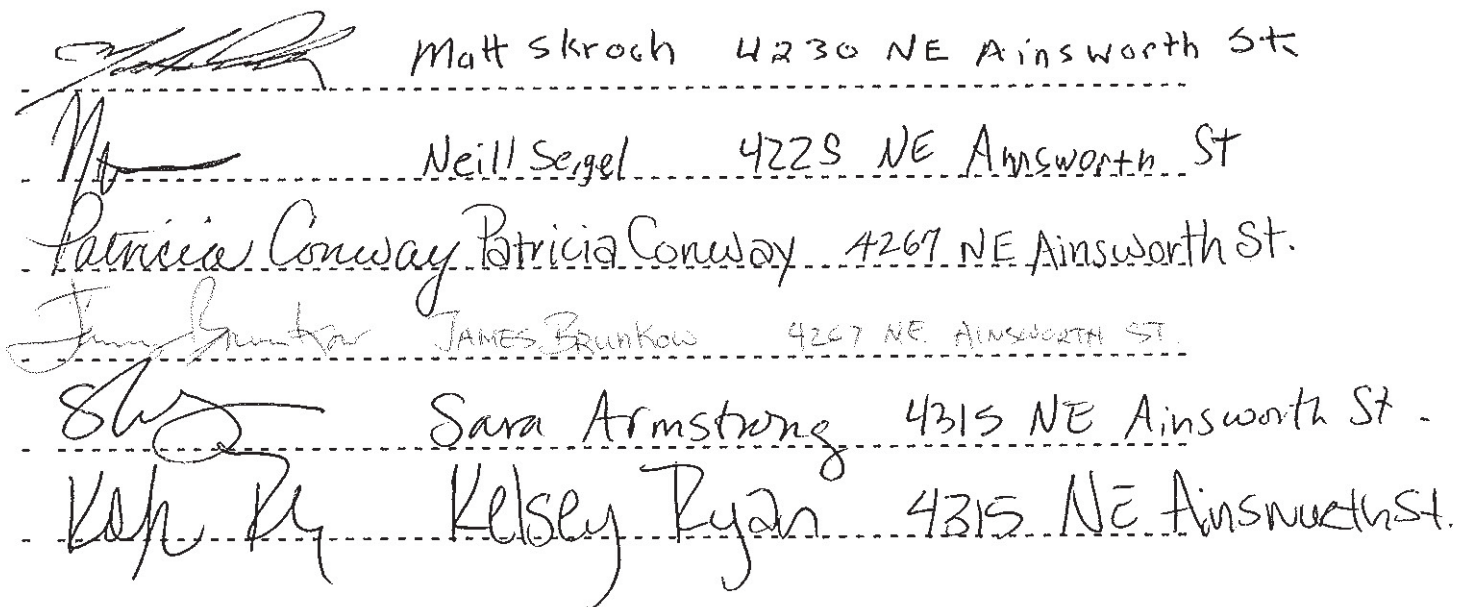 Matt Skroch 4230 NE Ainsworth St.
Neill Seigel 4225 NE Ainsworth St
Patricia Conway Patricia Conway 4267 NE Ainsworth St.
James Brunkow JAMES BRUNKOW 4267 NE AINSWORTH ST.
Sara Armstrong 4315 NE Ainsworth St.
Kelsey Ryan 4315 NE Ainsworth St.